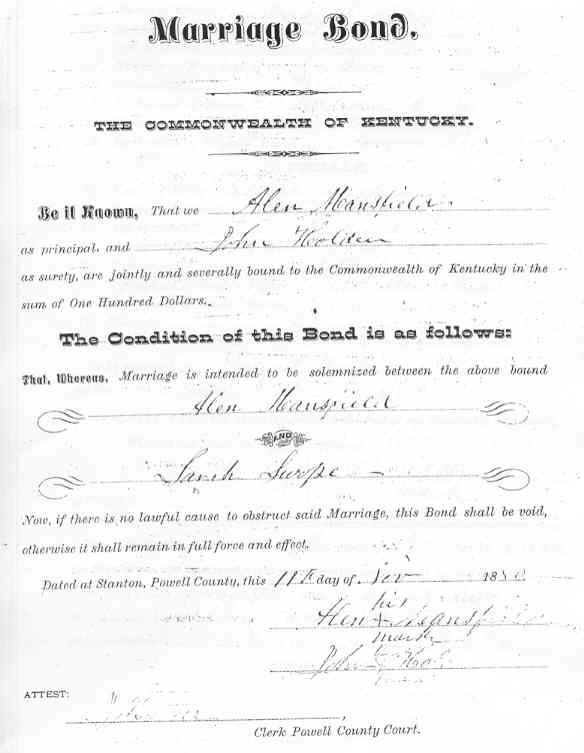 Marriage Bond,
THE COMMONWEALTH OF KENTUCKY.
Be it Known, That we Alen Mansfield
as principal, and John Holden
as surety, are jointly and severally bound to the Commonwealth of Kentucky in the
sum of One Hundred Dollars.
The Condition of this Bond is as follows:
That, Whereas, Marriage is intended to be solemnized between the above bound
Alen Mansfield
AND
Sarah Swope
Now, if there is no lawful cause to obstruct said Marriage, this Bond shall be void,
otherwise it shall remain in full force and effect.
Dated at Stanton, Powell County, this 11th day of Nov 188
his
Alen x Mansfield
mark
John
ATTEST:
Clerk Powell County Court.